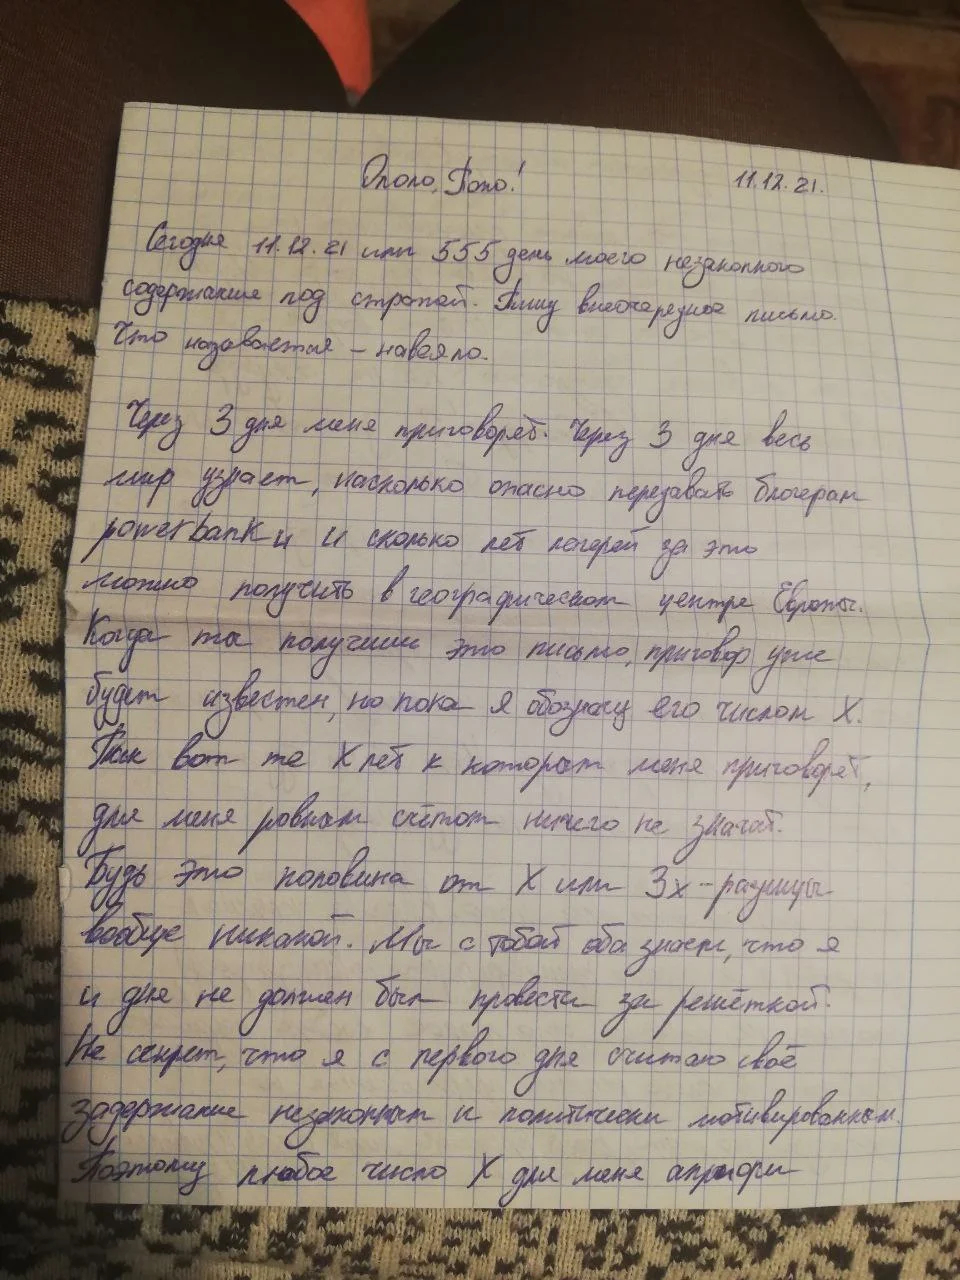 11.12.21.
Сегодня 11.12.21 или 555 день моего незаконного
содержания под стражей. Пишу внеочередное письмо.
Что называется – навеяло.
Через 3 дня меня приговорят. Через 3 дня весь
мир узнает, насколько опасно передавать блогерам
powerbankи и сколько лет лагерей за это
можно получить в географическом центре Европы.
Когда ты получишь это письмо, приговор уже
будет известен, но пока я обозначу его числом X.
Так вот те X лет к которым меня приговорят,
для меня ровным счётом ничего не значат.
Будь это половина от X или 3x – разницы
вообще никакой. Мы с тобой оба знаем, что я
и дня не должен был провести за решёткой.
Не секрет, что я с первого дня считаю своё
задержание незаконным и политически мотивированным.
Поэтому любое число X для меня априори